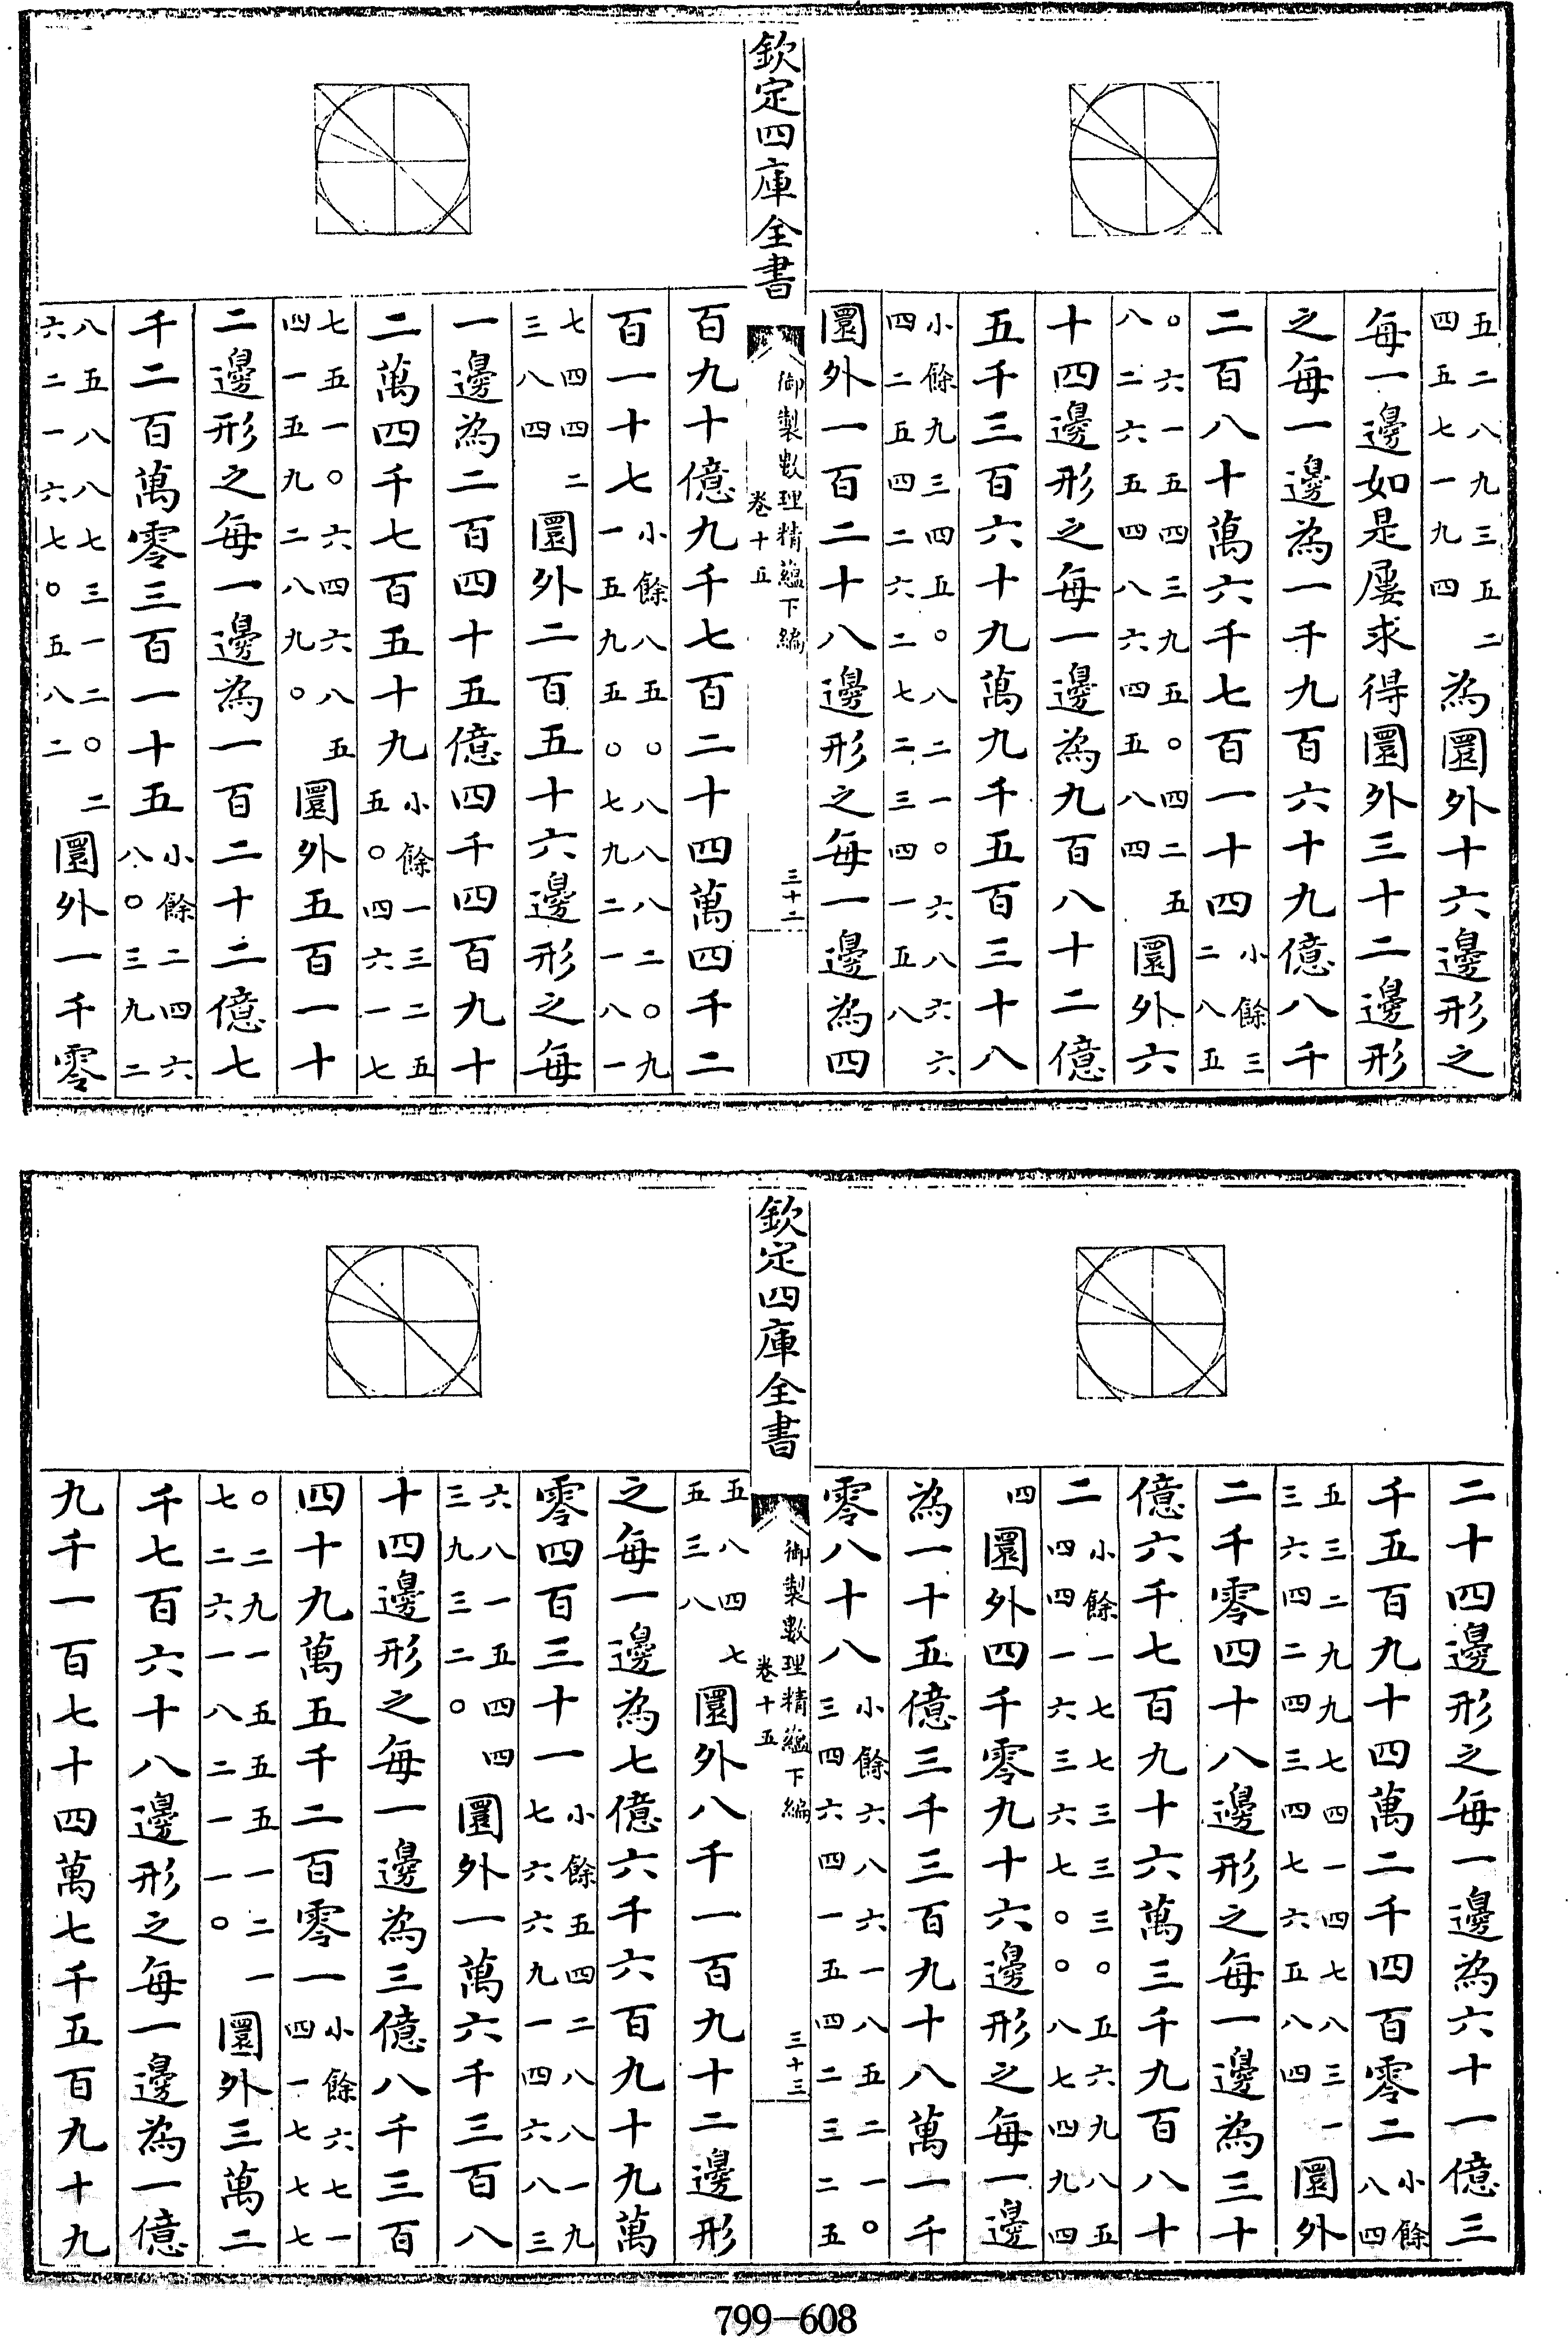 五二八九三五二
四五七一九四
為圜外十六邊形之
每一邊如是屢求得圜外三十二邊形
之每一邊為一千九百六十九億八千
二百八十萬六千七百一十四
小餘三
二八五
〇六一五四三九五〇四二五
八二六五四八六四五八四
圜外六
十四邊形之每一邊為九百八十二億
五千三百六十九萬九千五百三十八
小餘九三四五〇八二一〇六八六六
四二五四二六二七二三四一五八
圜外一百二十八邊形之每一邊為四
欽定四庫全書
御製數理精蘊下編
卷十五
三十二
百九十億九千七百二十四萬四千二
百一十七
小餘八五〇八八二〇九
一五九五〇七九二一八一
七四四二
三八四
圜外二百五十六邊形之每
一邊為二百四十五億四千四百九十
二萬四千七百五十九
小餘一三二五
五〇四六一七
七五一〇六四六八五
四一五九二八九〇
圜外五百一十
二邊形之每一邊為一百二十二億七
千二百萬零三百一十五
小餘二四六
八〇三九二
八五八八七三一二〇二
六二一六七〇五八二
圜外一千零
二十四邊形之每一邊為六十一億三
千五百九十四萬二千四百零二
小餘
八四
五三二九九七四一四七八三一
三六四二四三四七六五八四
圜外
二千零四十八邊形之每一邊為三十
億六千七百九十六萬三千九百八十
二
小餘一七七三三三〇五六九八五
四四一六三六七〇〇八七四九四
四
圜外四千零九十六邊形之每一邊
為一十五億三千三百九十八萬一千
零八十八
小餘六八六一八五二一〇
三四六四一五四二三二五
欽定四庫全書
御製數理精蘊下編
卷十五
三十三
五八四七
五三八
圜外八千一百九十二邊形
之每一邊為七億六千六百九十九萬
零四百三十一
小餘五四二八八一九
七六六九一四六八三
六八一五四四
三九三二〇
圜外一萬六千三百八
十四邊形之每一邊為三億八千三百
四十九萬五千二百零一
小餘六七一
四一七七七
〇二九一五五五一二一
七二六一八二一一〇
圜外三萬二
千七百六十八邊形之每一邊為一億
九千一百七十四萬七千五百九十九
799-608